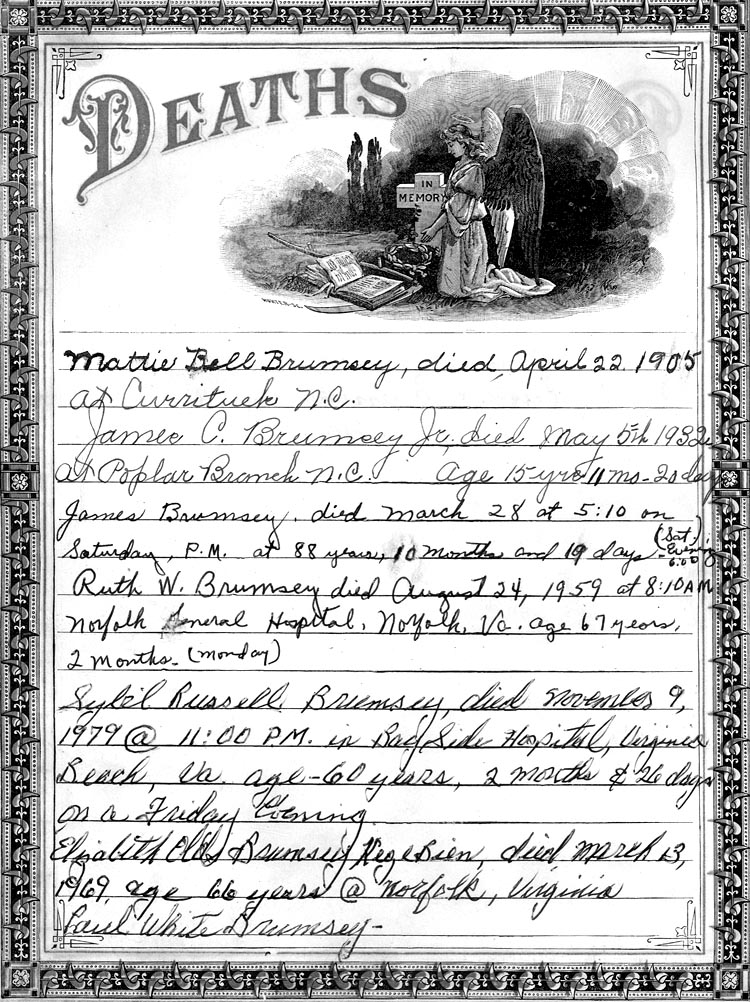 DEATHS
IN
MEMORY
Mattie Bell Brumsey, died, April 22. 1905
at Currituck N.C.
James C. Brumsey Jr, died May 5th 1932
at Poplar Branch N.C. Age 15 yrs 11 mo - 20 day
James Brumsey. died March 28 at 5:10 on
(Sat.)
Saturday, P.M. at 88 years, 10 months and 19 days - Evening
6:00
Ruth W. Brumsey died August 24, 1959 at 8:10 AM
Norfolk General Hospital, Norfolk, Va. age 67 years,
2 months - (Monday)
Sybil Russell Brumsey, died November 9,
1979 @ 11:00 P.M. in Bay Side Hospital, Virginia
Beach, Va. age - 60 years, 2 months & 26 days
on a Friday Evening.
Elizabeth Brumsey died March 13,
1969, age 66 years @ Norfolk, Virginia
Paul White Brumsey -